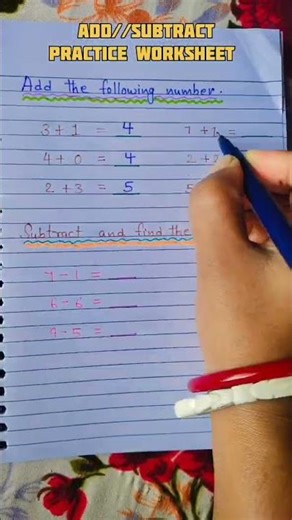 ADD//SUBTRACT
PRACTICE WORKSHEET
Add the following number.
3 + 1 = 4 7 + 1 =
4 + 0 = 4 2 + 2
2 + 3 = 5 5
Subtract and find the
7 - 1 =
6 - 6 =
9 - 5 =